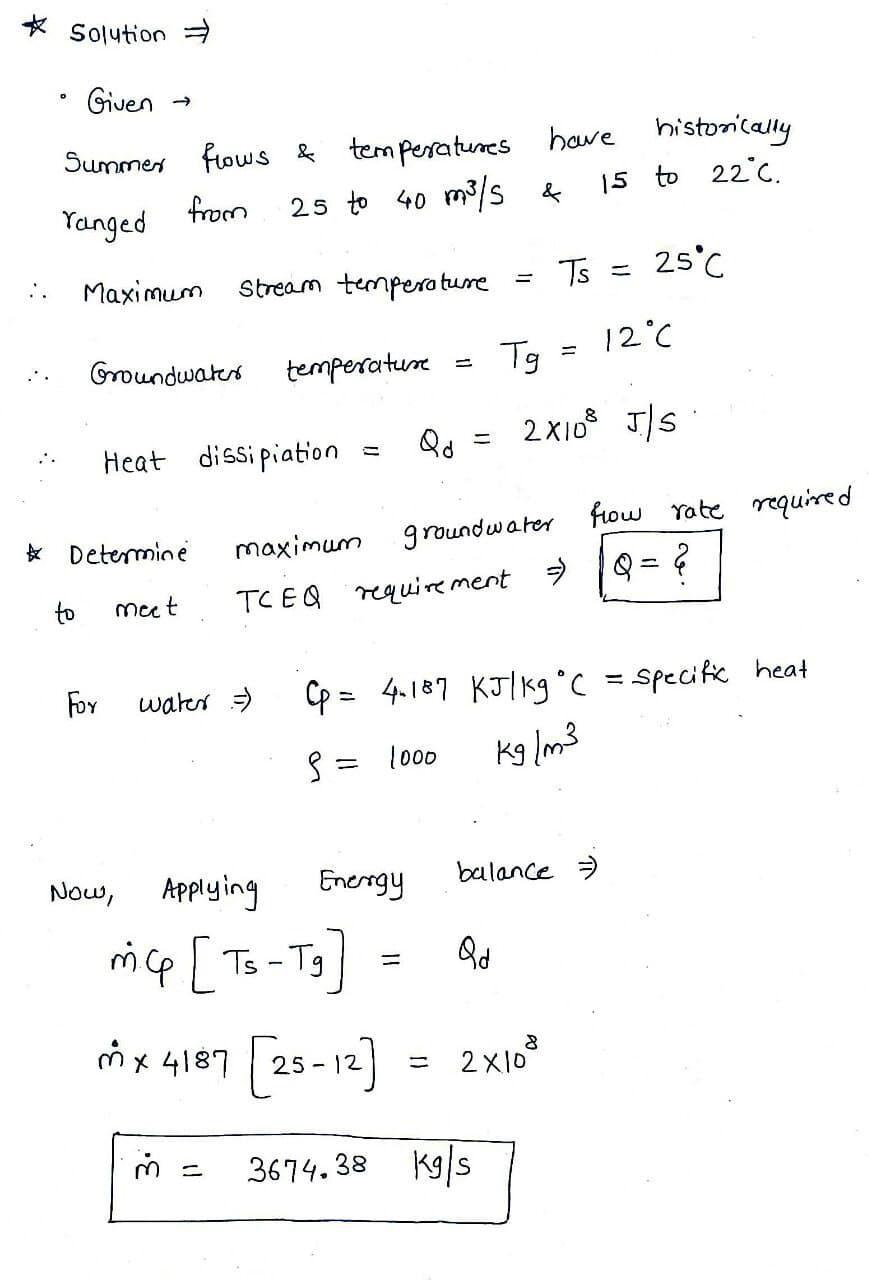 * Solution ⇒
• Given →
Summer flows & temperatures have historically
ranged from 25 to 40 m³/s & 15 to 22°C.
∴ Maximum stream temperature = Ts = 25°C
∴ Groundwater temperature = Tg = 12°C
∴ Heat dissipiation = Qd = 2×10⁸ J/s
* Determine maximum groundwater flow rate required
to meet TCEQ requirement ⇒ Q = ?
For water ⇒ Cp = 4.187 KJ/kg°C = specific heat
ρ = 1000 kg/m³
Now, Applying Energy balance ⇒
ṁ Cp [Ts - Tg] = Qd
ṁ × 4187 [25 - 12] = 2×10⁸
ṁ = 3674.38 Kg/s